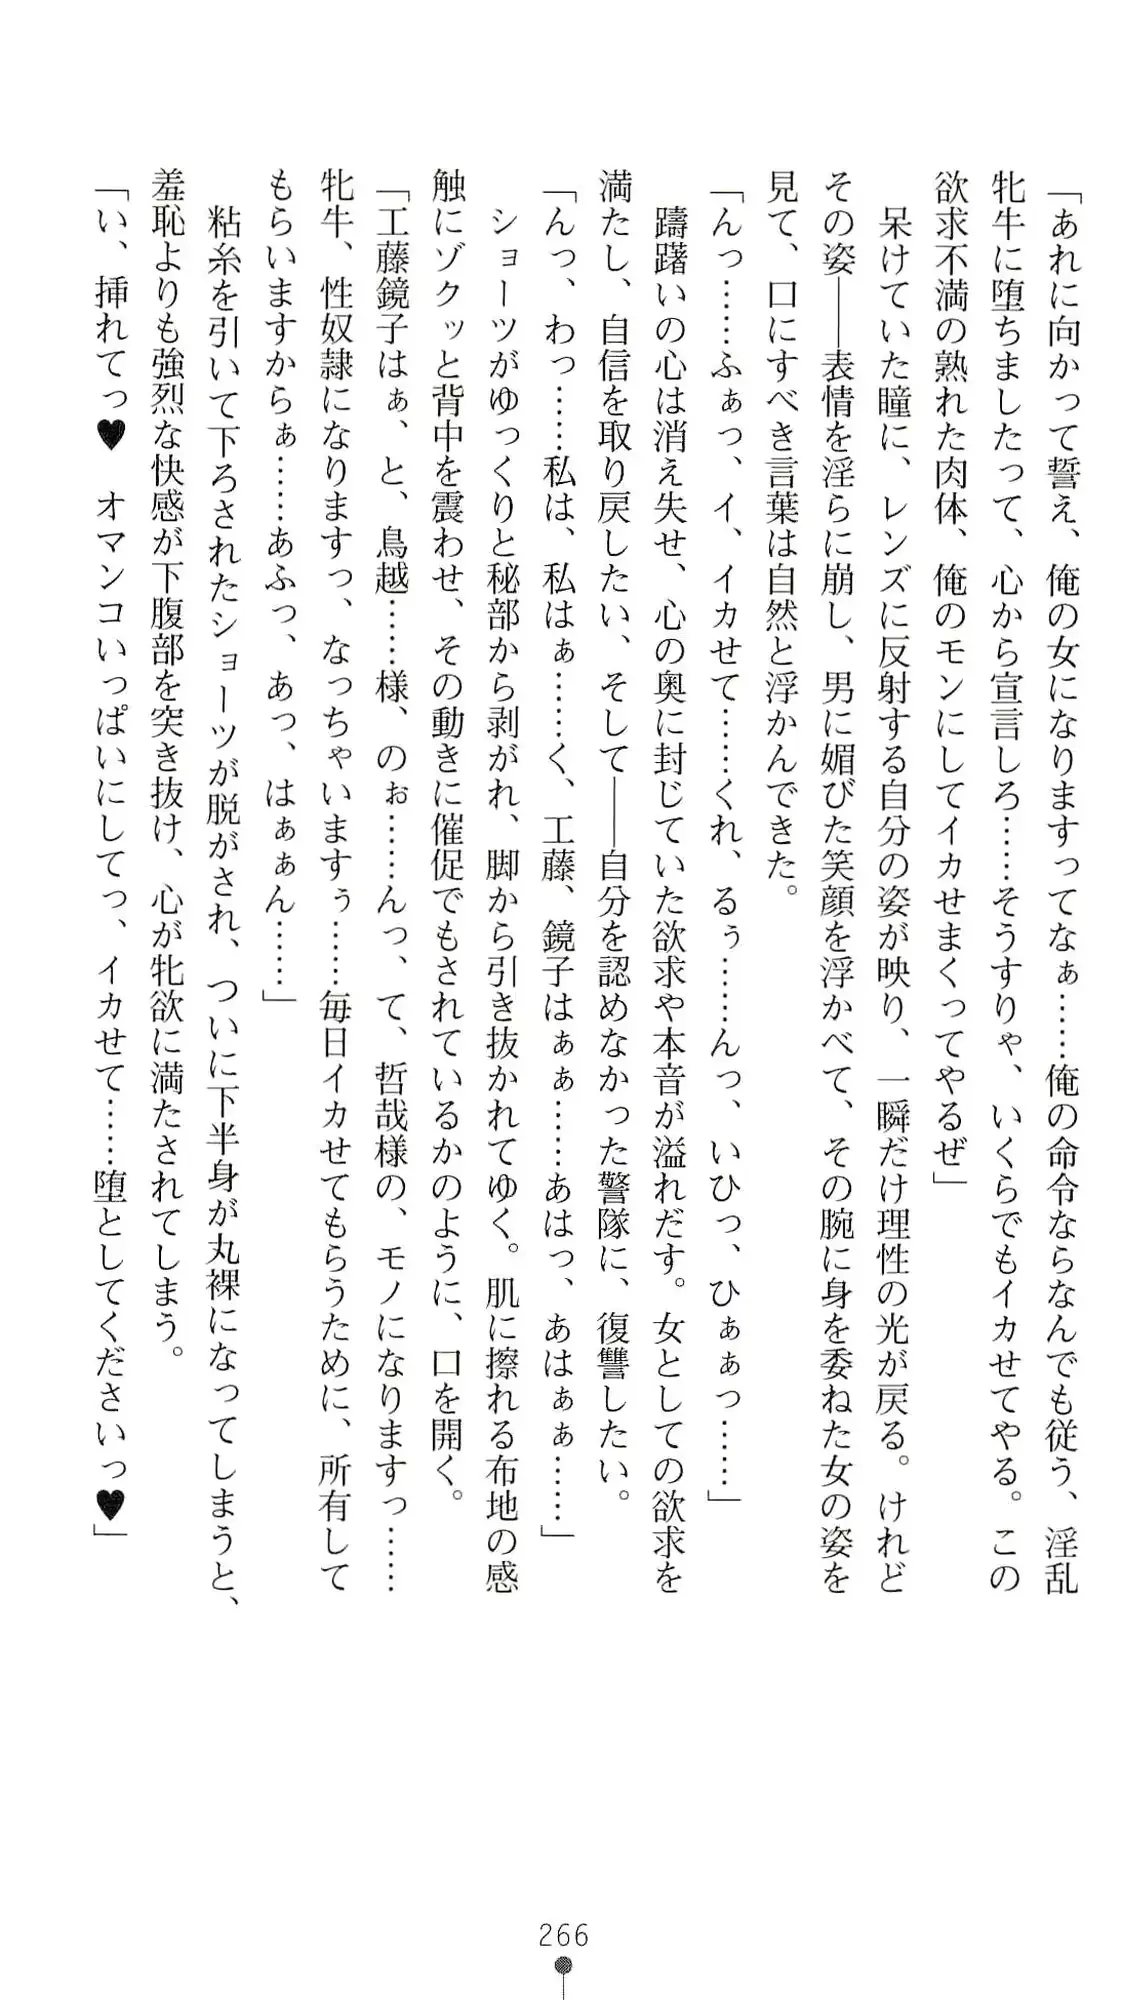 「あれに向かって誓え、俺の女になりますってなぁ……俺の命令ならなんでも従う、淫乱
牝牛に堕ちましたって、心から宣言しろ……そうすりゃ、いくらでもイカせてやる。この
欲求不満の熟れた肉体、俺のモンにしてイカせまくってやるぜ」
　呆けていた瞳に、レンズに反射する自分の姿が映り、一瞬だけ理性の光が戻る。けれど
その姿――表情を淫らに崩し、男に媚びた笑顔を浮かべて、その腕に身を委ねた女の姿を
見て、口にすべき言葉は自然と浮かんできた。
「んっ……ふぁっ、イ、イカせて……くれ、るぅ……んっ、いひっ、ひぁぁっ……」
　躊躇いの心は消え失せ、心の奥に封じていた欲求や本音が溢れだす。女としての欲求を
満たし、自信を取り戻したい、そして――自分を認めなかった警隊に、復讐したい。
「んっ、わっ……私は、私はぁ……く、工藤、鏡子はぁぁ……あはっ、あはぁぁ……」
　ショーツがゆっくりと秘部から剥がれ、脚から引き抜かれてゆく。肌に擦れる布地の感
触にゾクッと背中を震わせ、その動きに催促でもされているかのように、口を開く。
「工藤鏡子はぁ、と、鳥越……様、のぉ……んっ、て、哲哉様の、モノになりますっ……
牝牛、性奴隷になりますっ、なっちゃいますぅ……毎日イカせてもらうために、所有して
もらいますからぁ……あふっ、あっ、はぁぁん……」
　粘糸を引いて下ろされたショーツが脱がされ、ついに下半身が丸裸になってしまうと、
羞恥よりも強烈な快感が下腹部を突き抜け、心が牝欲に満たされてしまう。
「い、挿れてっ♥　オマンコいっぱいにしてっ、イカせて……堕としてくださいっ♥」
266